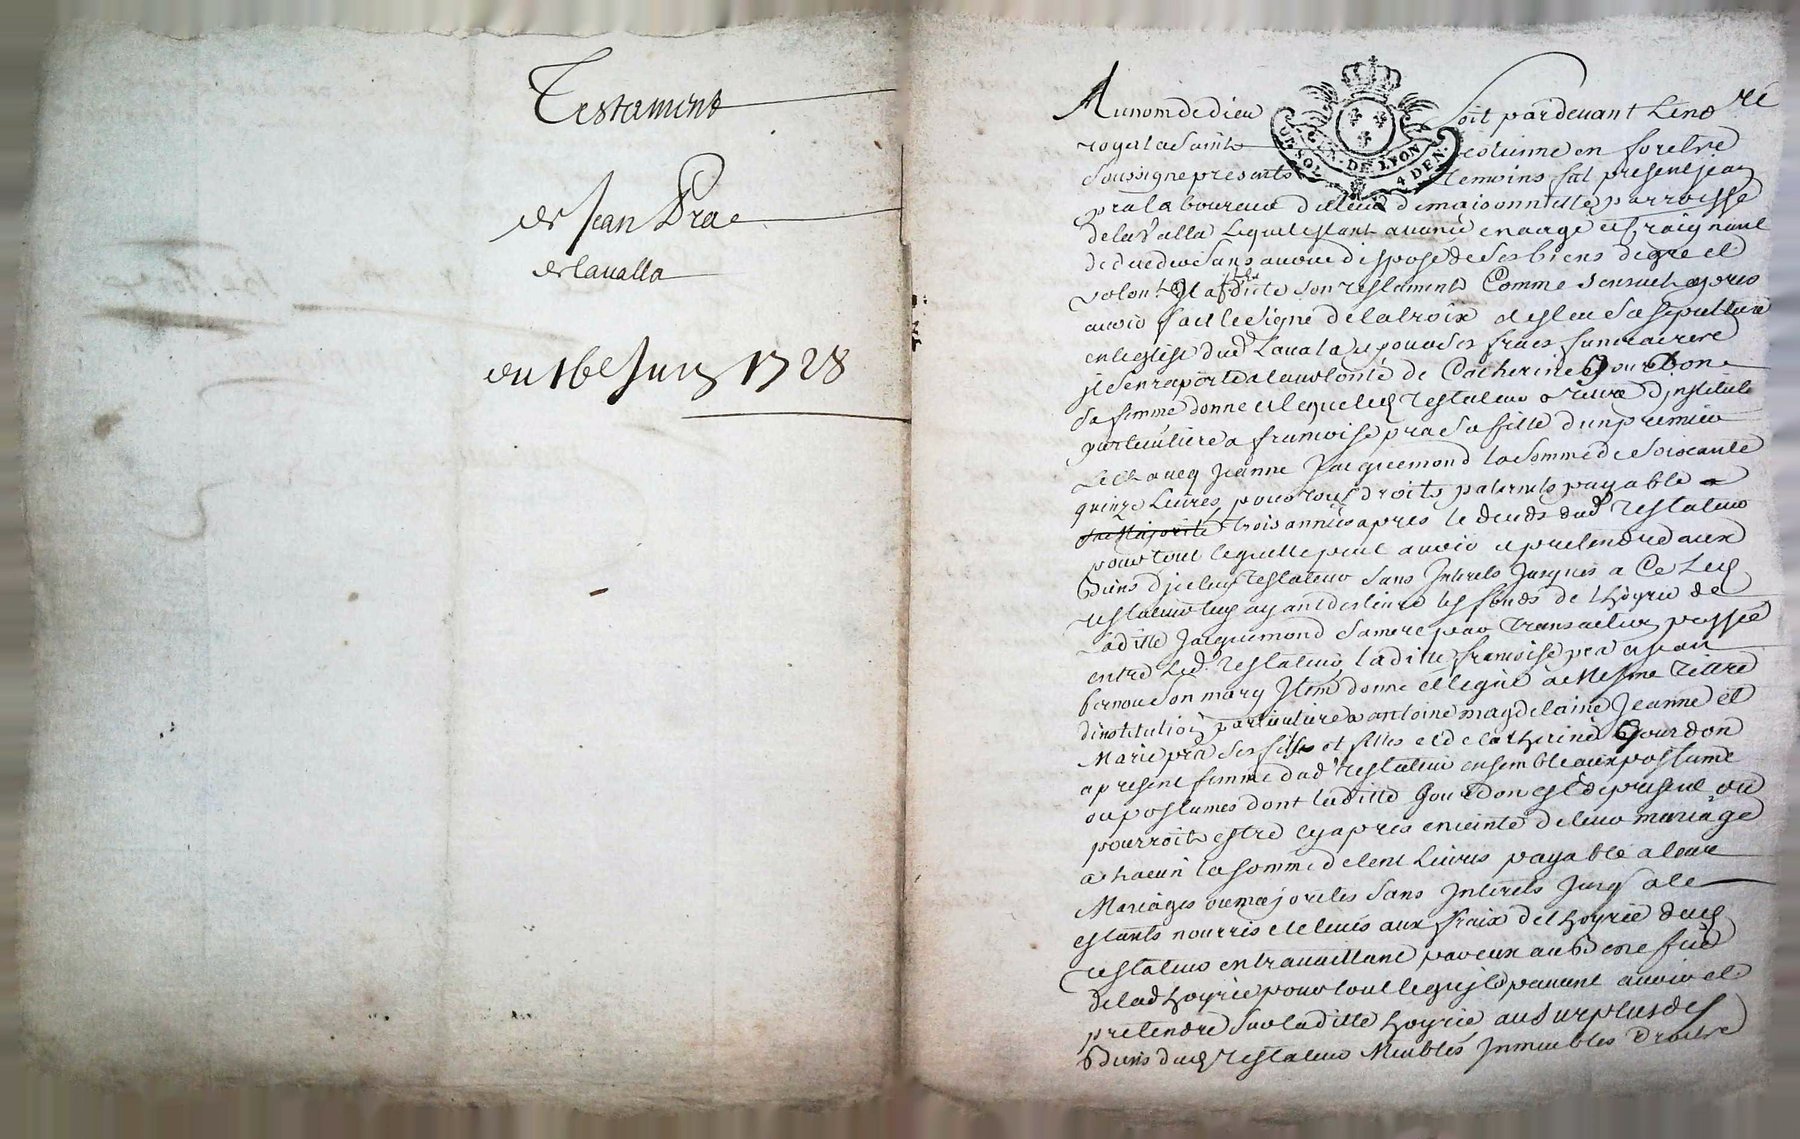 Testament
de Jean Pra
de lavalla
du 16e Juin 1728
Au nom de dieu soit pardevant le no re
royal a Saint estienne en forest
soussigne presents temoins fut present jean
pra laboureur du lieu de maisonnette parroisse
de la Valla lequel estant avancé en aage et craignant
de deceder sans avoir disposé de ses biens de gré et
volonté il a dicté son testament Comme s'ensuit apres
avoir fait le signe de la Croix a esleu sa sepulture
en l'eglise dud Lavala et pour ses frais funeraires
il s'en raporte a la volonté de Catherine Gourdon
sa femme donne et legue led testateur
particuliere a francoise pra sa fille d'un premier
lict avec Jeanne Jacquemond la somme de soixante
quinze Livres pour tous droits paternels payable a
sa Majorité trois années apres le deceds dud testateur
pour tout ce quelle peut avoir et pretendre aux
Biens d'jceluy testateur sans Interets Jusques a Ce Led
testateur luy ayant les fonds de l'hoyrie de
laditte Jacquemond sa mere par transaction passée
entre Led testateur laditte francoise pra et jean
son mary Item donne et legue a mesme tittre
d'institution particuliere a antoine magdelaine Jeanne et
Marie pra ses fils et filles et de Catherine Gourdon
a present femme dud testateur ensemble aux postume
ou postumes dont ladite Gourdon est de present ou
pourroit estre cy apres enceinte de leur mariage
a chacun la somme de Cent Livres payable a leur
Mariages ou majorites sans Interets Jusqu'ale
estants nourris eleleués aux fraix de l'hoyrie dud
testateur en travaillant par eux au Benefice
de lad hoyrie pour tout ce qu'ils peuvent avoir et
pretendre sur laditte hoyrie au surplus des
Biens dud testateur Meubles Immeubles Droits
GEN. DE LYON
4 DEN.